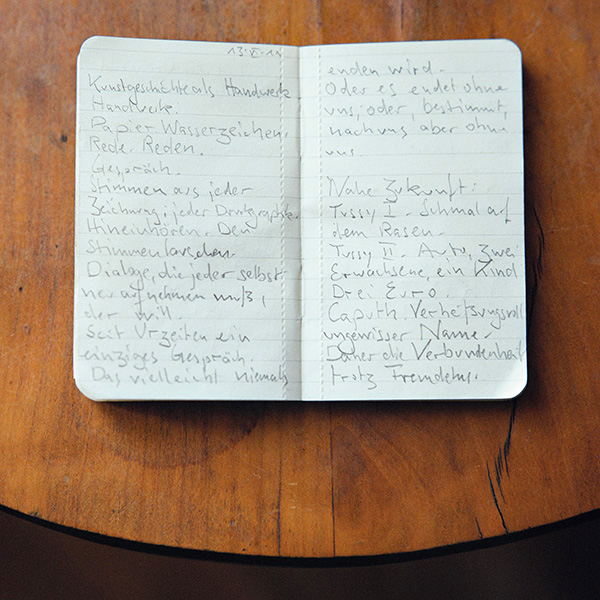 13.X.14
Kunstgeschichte als Handwerk
Handwerke.
Papier. Wasserzeichen.
Rede. Reden.
Gespräch.
Stimmen aus jeder
Zeichnung, jeder Druckgraphik.
Hineinhören. Den
Stimmen lauschen.
Dialoge, die jeder selbst
neu aufnehmen muß,
der will.
Seit Urzeiten ein
einziges Gespräch.
Das vielleicht niemals
enden wird.
Oder es endet ohne
uns, oder, bestimmt,
nach uns aber ohne
uns.
Nahe Zukunft:
Tussy I. Schmal auf
dem Rasen.
Tussy II. Auto, zwei
Erwachsene, ein Kind
Drei Euro.
Caputh. Verheißungsvoll
ungewisser Name.
Daher die Verbundenheit
trotz Fremdeins.